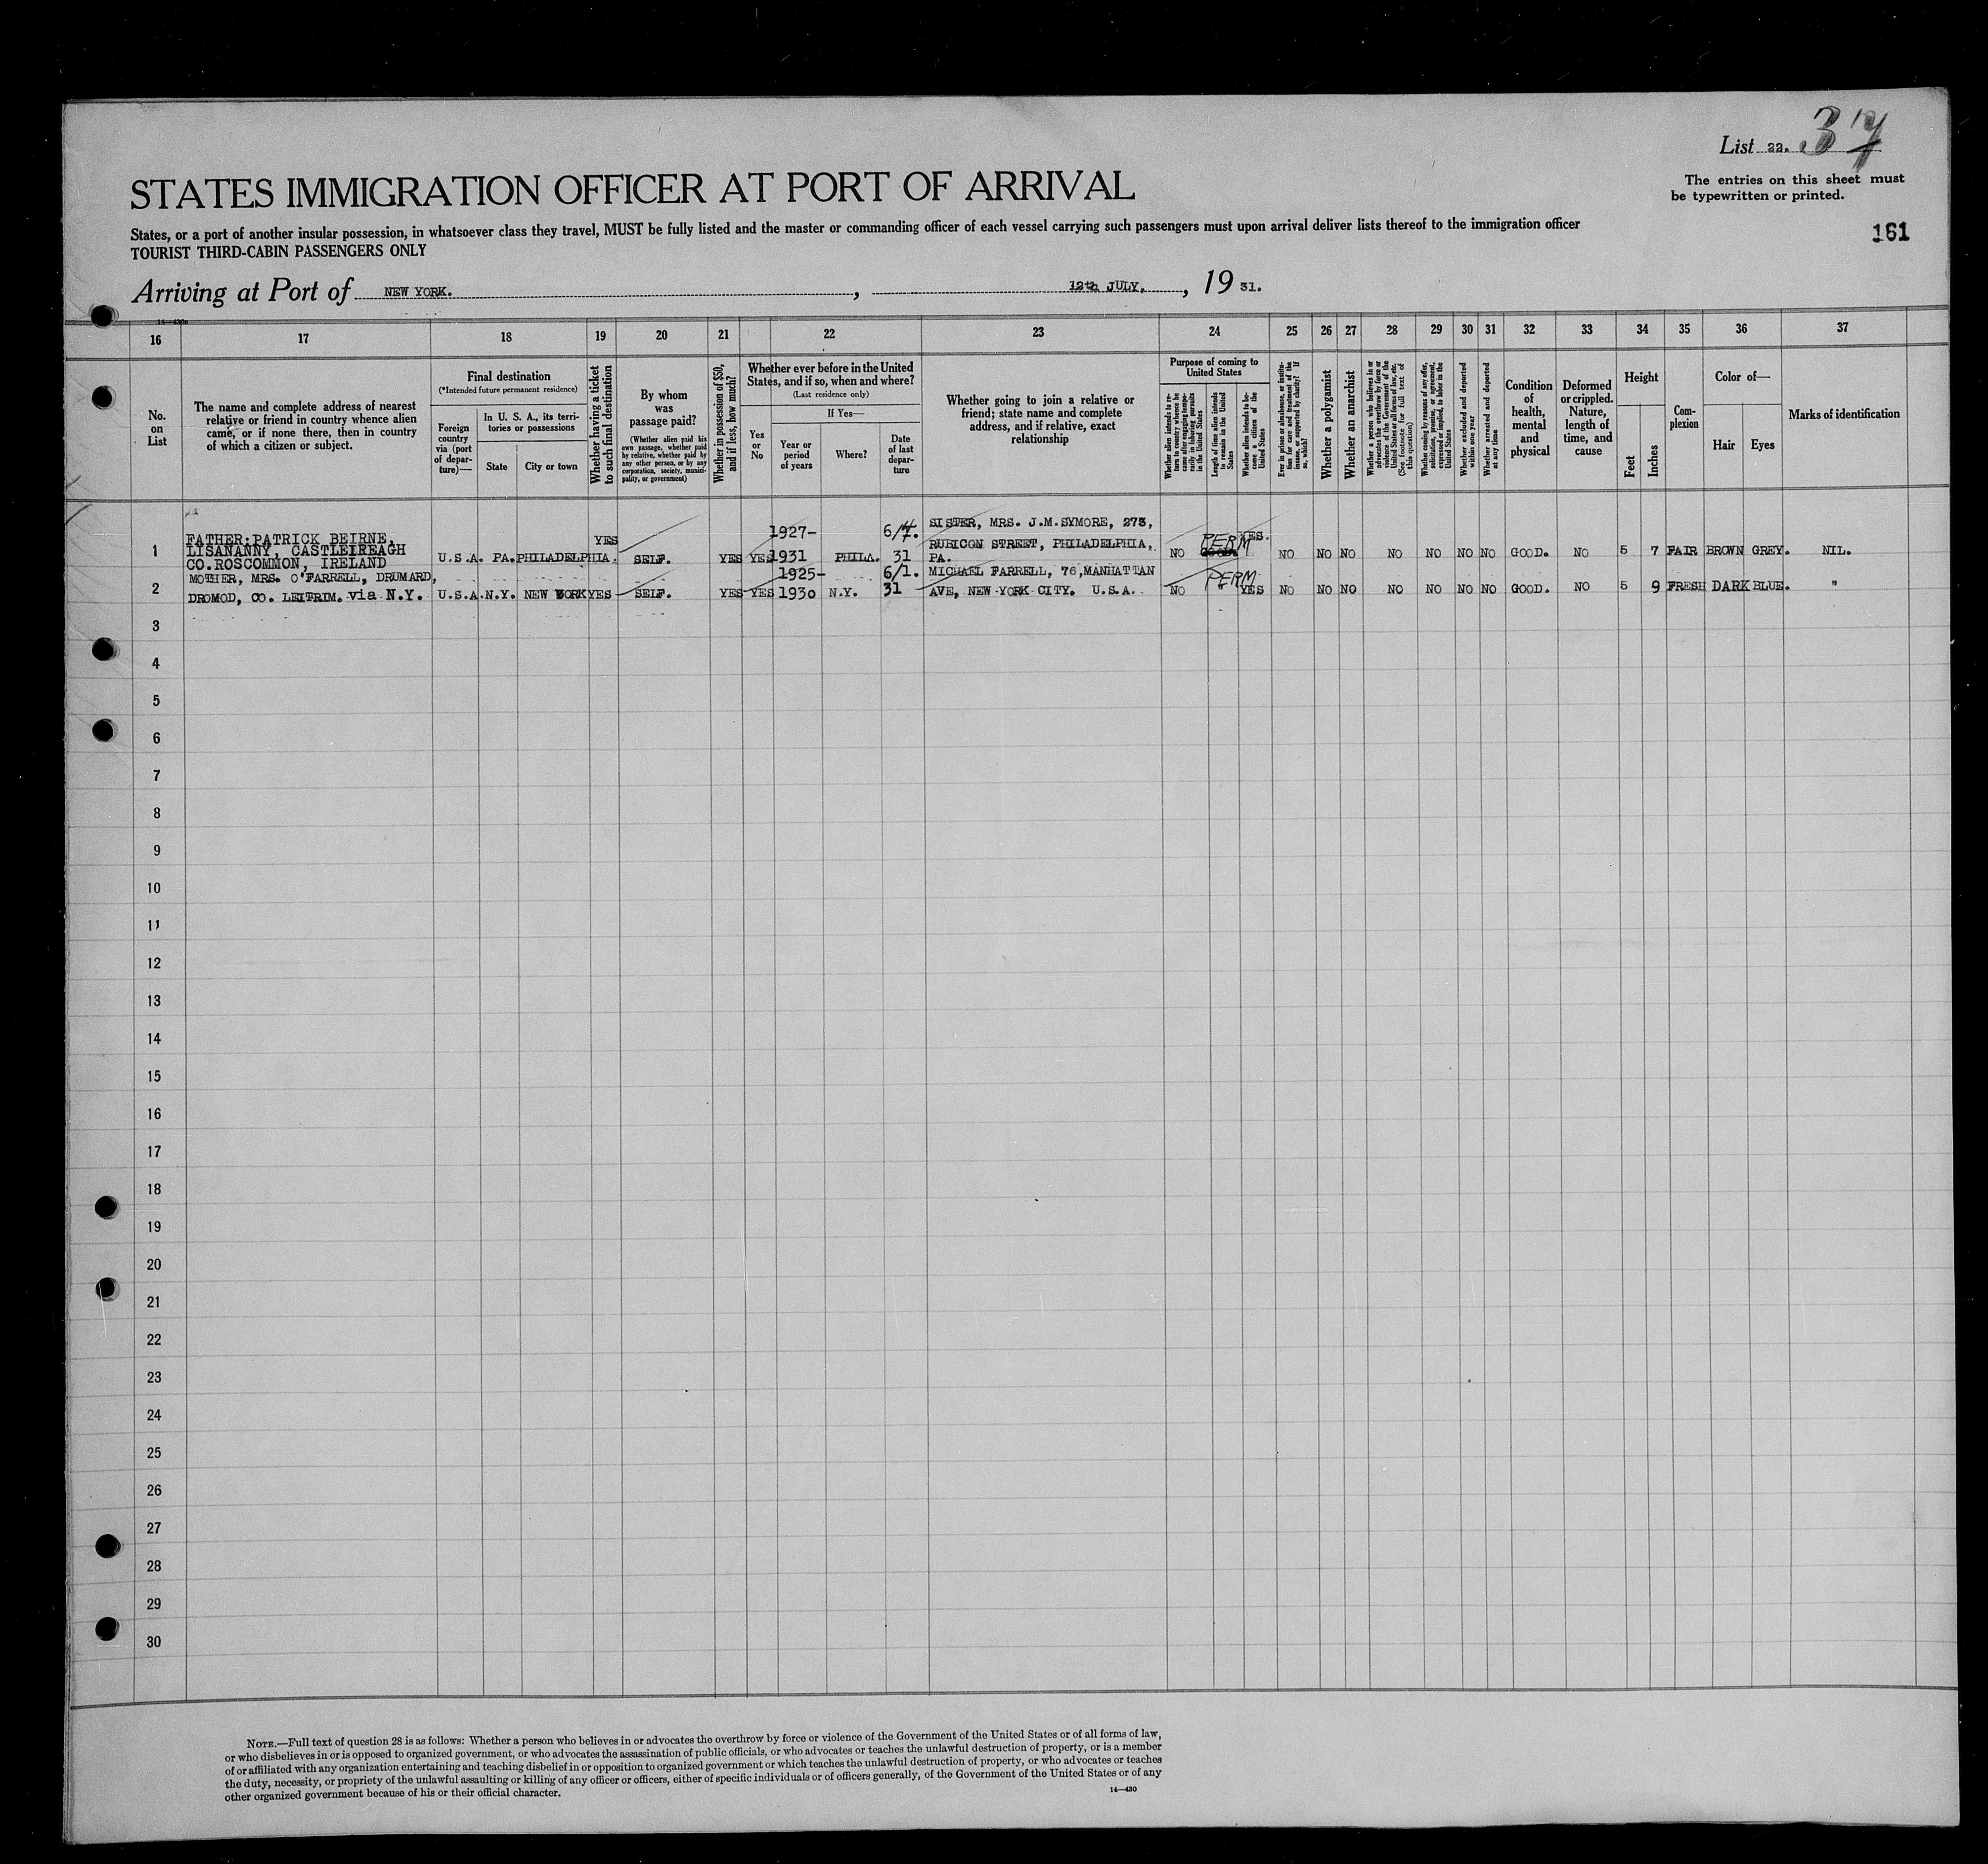 List 22. 37
The entries on this sheet must
be typewritten or printed.
161
STATES IMMIGRATION OFFICER AT PORT OF ARRIVAL
States, or a port of another insular possession, in whatsoever class they travel, MUST be fully listed and the master or commanding officer of each vessel carrying such passengers must upon arrival deliver lists thereof to the immigration officer
TOURIST THIRD-CABIN PASSENGERS ONLY
Arriving at Port of NEW YORK. , 12th JULY, , 19 31.
14—430
16 17 18 19 20 21 22 23 24 25 26 27 28 29 30 31 32 33 34 35 36 37
No.
on
List
The name and complete address of nearest
relative or friend in country whence alien
came, or if none there, then in country
of which a citizen or subject.
Final destination
(*Intended future permanent residence)
Foreign
country
via (port
of depar-
ture)—
In U. S. A., its terri-
tories or possessions
State
City or town
Whether having a ticket
to such final destination
By whom
was
passage paid?
(Whether alien paid his
own passage, whether paid
by relative, whether paid by
any other person, or by any
corporation, society, munici-
pality, or government)
Whether in possession of $50,
and if less, how much?
Whether ever before in the United
States, and if so, when and where?
(Last residence only)
Yes
or
No
If Yes—
Year or
period
of years
Where?
Date
of last
depar-
ture
Whether going to join a relative or
friend; state name and complete
address, and if relative, exact
relationship
Purpose of coming to
United States
Whether alien intends to re-
turn to country whence he
came after engaging tempo-
rarily in laboring pursuits
in the United States
Length of time alien intends
to remain in the United
States
Whether alien intends to be-
come a citizen of the
United States
Ever in prison or almshouse, or institu-
tion for care and treatment of the
insane, or supported by charity? If
so, which?
Whether a polygamist
Whether an anarchist
Whether a person who believes in or
advocates the overthrow by force or
violence of the Government of the
United States or all forms of law, etc.
(See footnote for full text of
this question)
Whether coming by reasons of any offer,
solicitation, promise, or agreement,
expressed or implied, to labor in the
United States
Whether excluded and deported
within one year
Whether arrested and deported
at any time
Condition
of
health,
mental
and
physical
Deformed
or crippled.
Nature,
length of
time, and
cause
Height
Feet
Inches
Com-
plexion
Color of—
Hair
Eyes
Marks of identification
SISTER, MRS. J.M.SYMORE, 273,
FATHER:PATRICK BEIRNE, YES 1927- 6/4. RUBICON STREET, PHILADELPHIA, PERM YES.
1 LISANANNY, CASTLEIREAGH U.S.A. PA. PHILADELPHIA. SELF. YES YES 1931 PHILA. 31 PA. NO NO NO NO NO NO NO NO GOOD. NO 5 7 FAIR BROWN GREY. NIL.
CO.ROSCOMMON, IRELAND
MOTHER, MRS. O'FARRELL, DRUMARD, 1925- 6/1. MICHAEL FARRELL, 76,MANHATTAN PERM
2 DROMOD, CO. LEITRIM. via N.Y. U.S.A. N.Y. NEW YORK YES SELF. YES YES 1930 N.Y. 31 AVE, NEW YORK CITY. U.S.A. NO YES NO NO NO NO NO NO NO GOOD. NO 5 9 FRESH DARK BLUE. "
3
4
5
6
7
8
9
10
11
12
13
14
15
16
17
18
19
20
21
22
23
24
25
26
27
28
29
30
NOTE.—Full text of question 28 is as follows: Whether a person who believes in or advocates the overthrow by force or violence of the Government of the United States or of all forms of law,
or who disbelieves in or is opposed to organized government, or who advocates the assassination of public officials, or who advocates or teaches the unlawful destruction of property, or is a member
of or affiliated with any organization entertaining and teaching disbelief in or opposition to organized government or which teaches the unlawful destruction of property, or who advocates or teaches
the duty, necessity, or propriety of the unlawful assaulting or killing of any officer or officers, either of specific individuals or of officers generally, of the Government of the United States or of any
other organized government because of his or their official character.
14—430